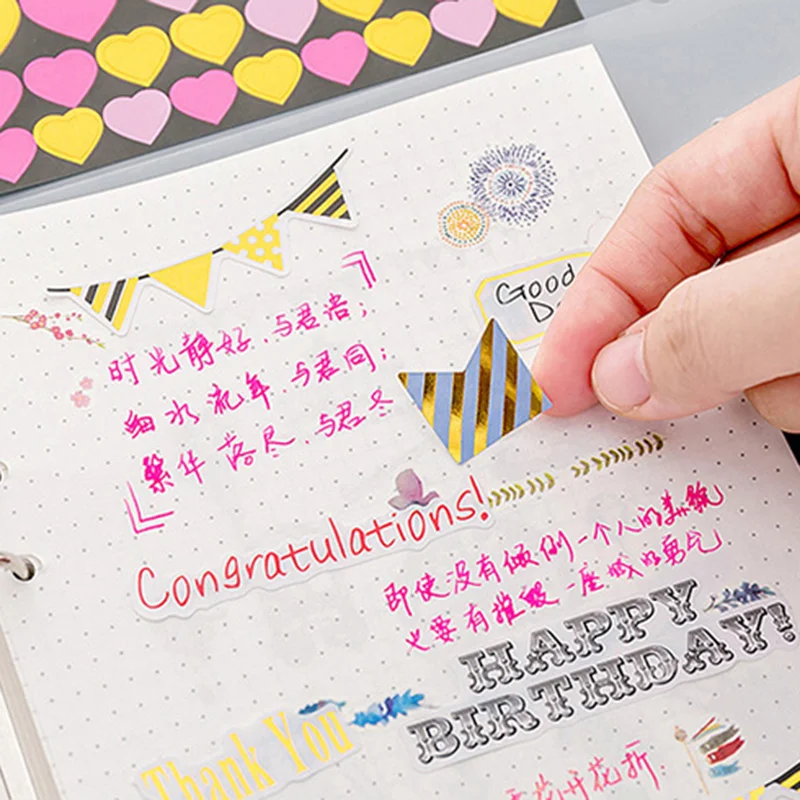 Good
D
时光静好、与君语;
细水流年、与君同;
繁华落尽、与君老
Congratulations!
即使没有倾倒一个人的美貌
也要有摧毁一座城的勇气
HAPPY
BIRTHDAY!
Thank You
花开花折